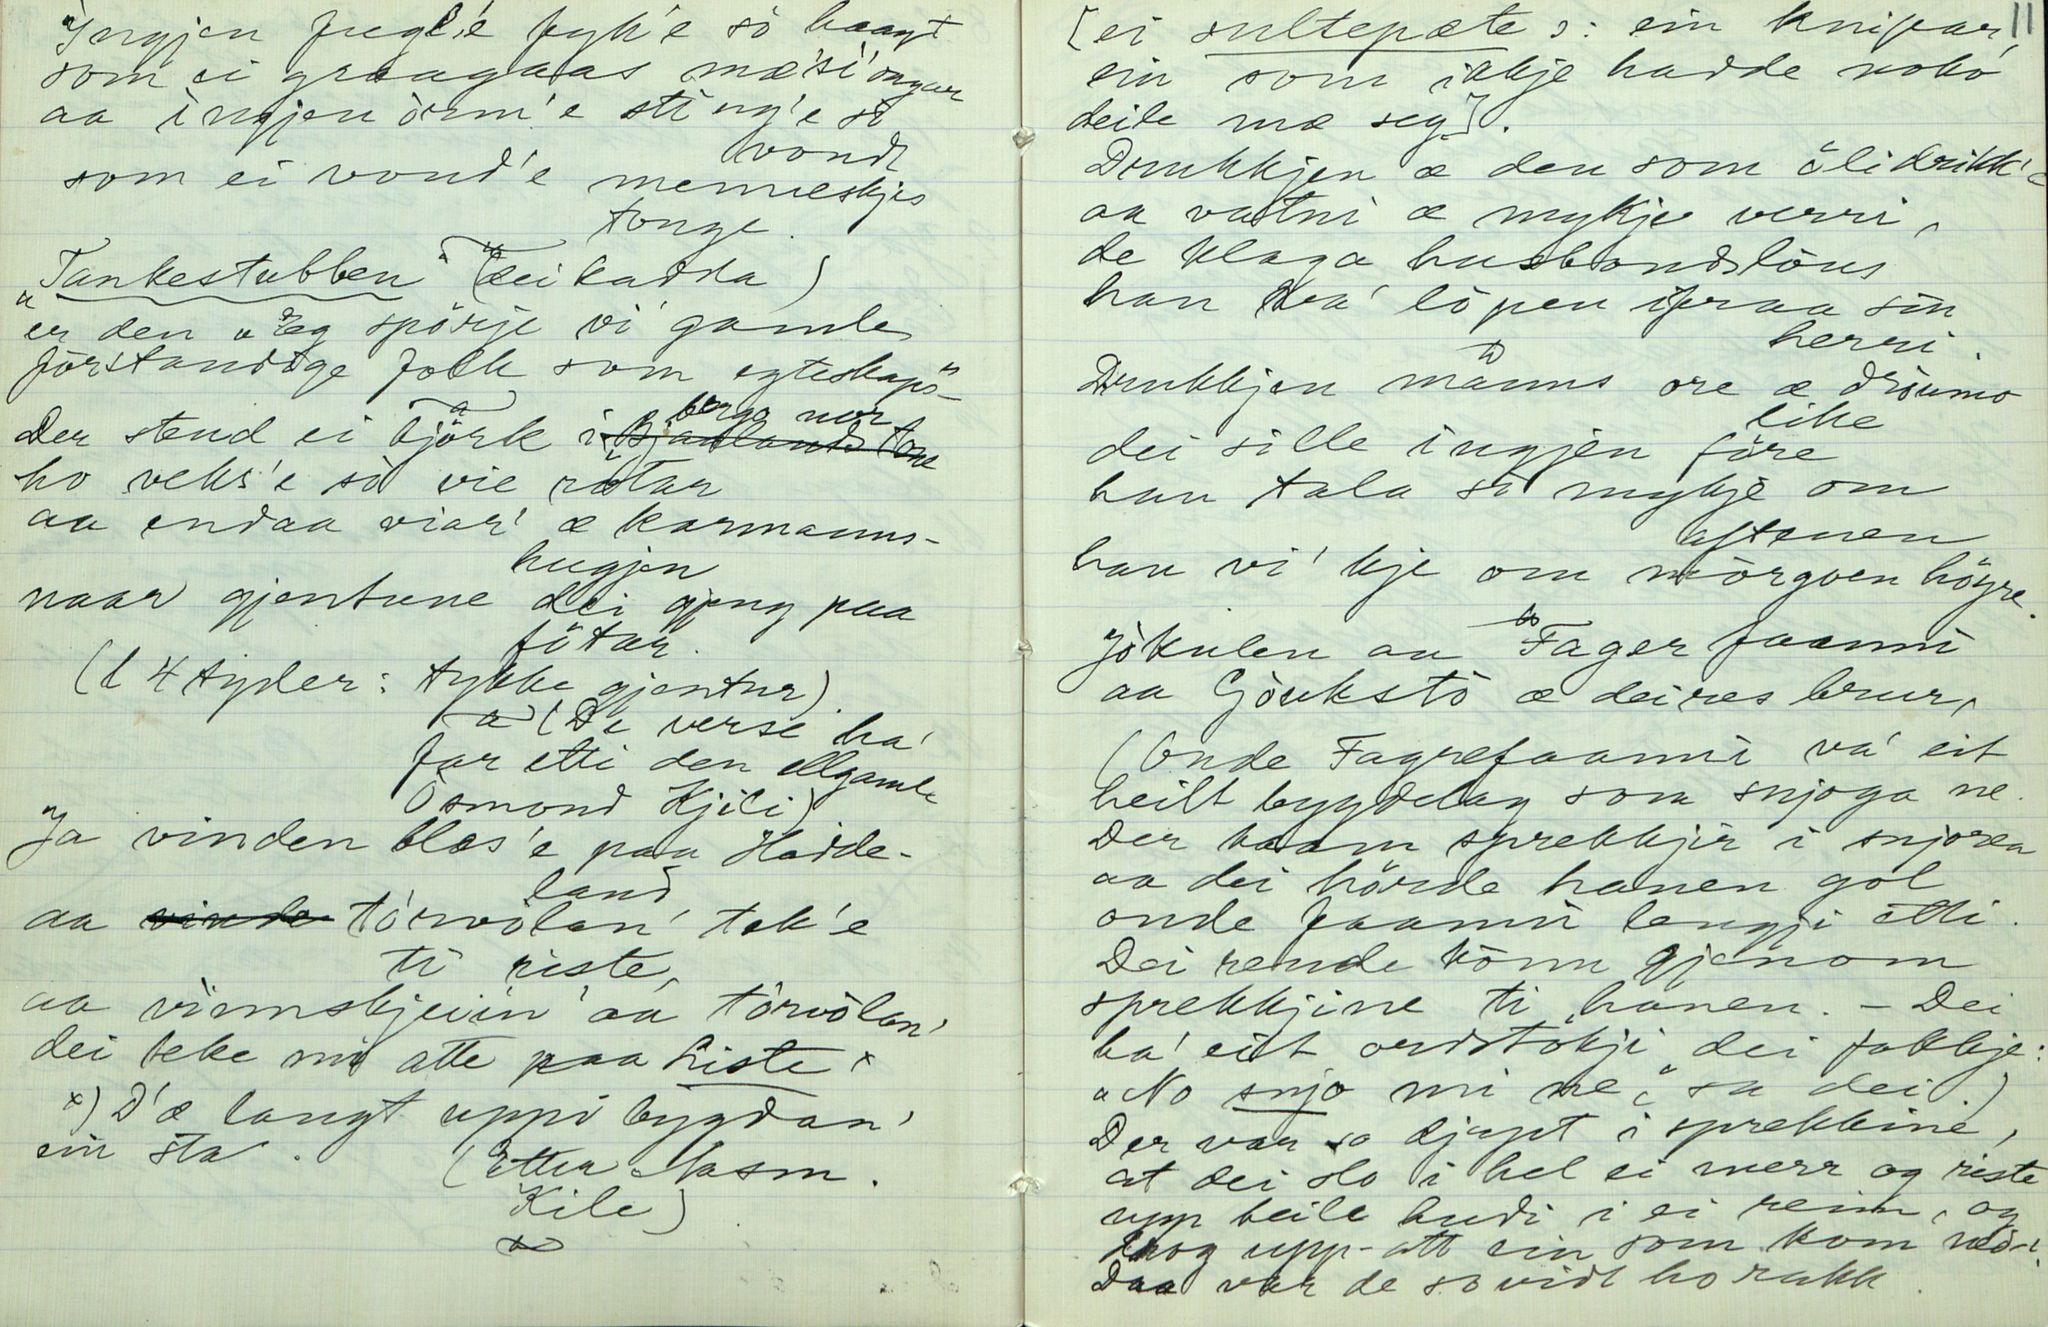 "Ingjen fugl'e fyk'e so haagt
som ei graagaas mæ si' ongar
aa ingjen orm'e sting'e so
vondt
som ei vond'e menneskjes
tonge.
"Tankestubben" (dei kadda)
er den "Eg spörje vi' gamle
"förstandige folk som egteskaps-"
Der stend ei björk i berge nor
ho veks'e so vie røtar
aa endaa viar' æ karmanns-
hugjen
naar gjentune dei gjeng paa
fötar.
(d 4 tyder: tykke gjentur)
(De verse ha'
far etti den ellgamle
Osmond Kjili)
"Ja vinden blæs'e paa Hadde-
land
aa torvolan' tek'e
ti riste,
aa viemskjeiin' aa torvolan'
dei teke mi atte paa Liste x
x) D'æ langt uppi bygdan'
ein sta'.
(Etter Aasm.
Kile)
11
[ei sultepæte ɔ: ein knipar,
ein som ikkje hadde noko
deile mæ seg].
Drukkjen æ den som öli drikk'e
aa vatni æ mykje verri,
de klaga husbondslöus
han va' löpen ifraa sin
herri.
Drukkjen manns ore æ dröumo
like
dei sille ingjen före
han tala so mykje om
aftenen
han vi' kje om morgoen högre.
Jökulen aa Fager faanni
aa Gjöukstö æ deires brur,
(Onde Fagrefaanni va' eit
heilt bygdelag som snjoga ne.
Der kaam sprekkjir i snjoen
aa dei hörde hanen gol
onde faanni lengji etti.
Dei rende konn gjenom
sprekkjine ti hanen. - Dei
ha' eit ordstökji dei fokkje:
"No snjo mi ne", sa dei.)
Der var so djupt i sprekkine,
at dei slo i hel ei merr og riste
upp heile hudi i ei reim, og
drog upp-att ein som kom ned-i.
Daa var de so vidt ho rakk.